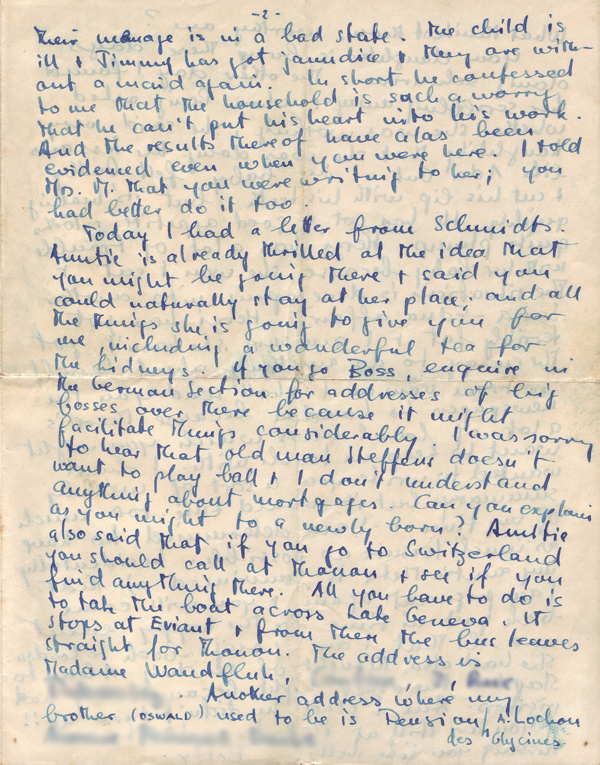 -2-
Their menage is in a bad state: the child is
ill + Jimmy has got jaundice + they are with-
out a maid again. In short he confessed
to me that the household is such a worry
that he can't put his heart into his work.
And the results thereof have alas been
evidenced even when you were here. I told
Mrs. M. that you were writing to her; you
had better do it too.
Today I had a letter from Schmidts.
Auntie is already thrilled at the idea that
you might be going there + said you
could naturally stay at her place; and all
the things she is going to give you for
me including a wonderful tea for
the kidneys. If you go Boss, enquire in
the German Section for addresses of big
bosses over there because it might
facilitate things considerably. I was sorry
to hear that old man Steffens doesn't
want to play ball + I don't understand
anything about mortgages. Can you explain
as you might to a newly born? Auntie
also said that if you go to Switzerland
you should call at Thonon + see if you
find anything there. All you have to do is
to take the boat across Lake Geneva. It
stops at Eviant + from there the bus leaves
straight for Thonon. The address is
Madame Wandfluh,
Another address where my
brother (OSWALD) used to be is Pension/A. Lochon
des Glycines